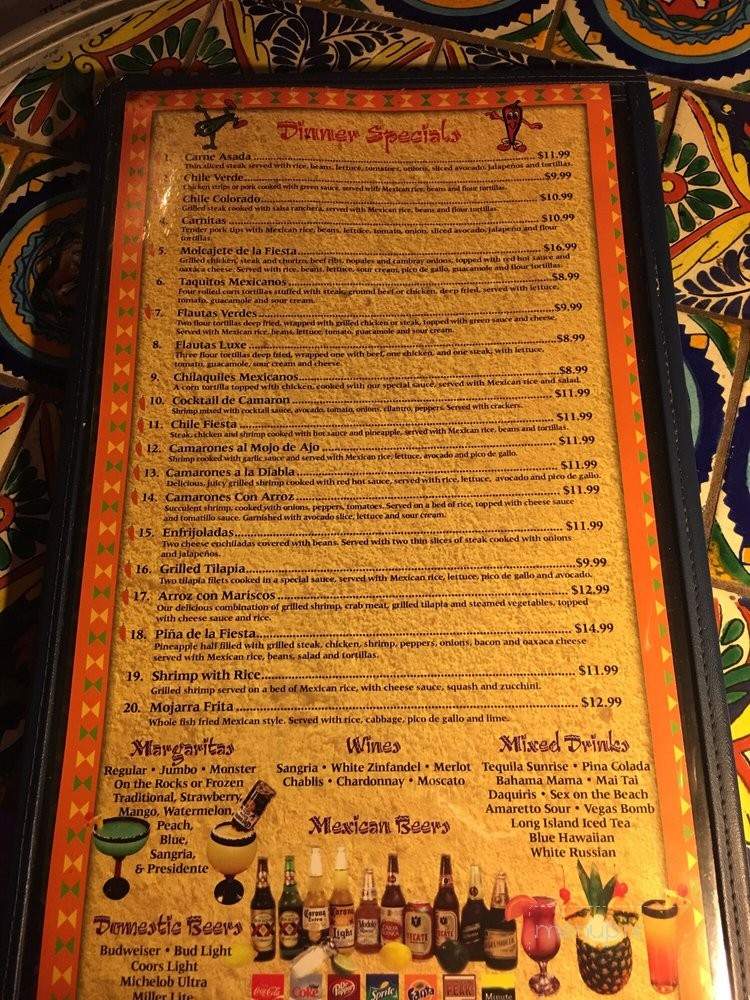 Dinner Specials
1. Carne Asada $11.99
Thin sliced steak served with rice, beans, lettuce, tomatoes, onions, sliced avocado, jalapeños and tortillas.
Chile Verde $9.99
Chicken strips or pork cooked with green sauce, served with Mexican rice, beans and flour tortillas.
Chile Colorado $10.99
Grilled steak cooked with salsa ranchera, served with Mexican rice, beans and flour tortillas.
4. Carnitas $10.99
Tender pork tips with Mexican rice, beans, lettuce, tomato, onion, sliced avocado, jalapeño and flour
tortillas.
5. Molcajete de la Fiesta $16.99
Grilled chicken, steak and chorizo, beef ribs, nopales and cambray onions, topped with red hot sauce and
oaxaca cheese. Served with rice, beans, lettuce, sour cream, pico de gallo, guacamole and flour tortillas.
6. Taquitos Mexicanos $8.99
Four rolled corn tortillas stuffed with steak, ground beef or chicken, deep fried, served with lettuce,
tomato, guacamole and sour cream.
7. Flautas Verdes $9.99
Two flour tortillas deep fried, wrapped with grilled chicken or steak, topped with green sauce and cheese.
Served with Mexican rice, beans, lettuce, tomato, guacamole and sour cream.
8. Flautas Luxe $8.99
Three flour tortillas deep fried, wrapped one with beef, one chicken, and one steak, with lettuce,
tomato, guacamole, sour cream and cheese.
9. Chilaquiles Mexicanos $8.99
A corn tortilla topped with chicken, cooked with our special sauce, served with Mexican rice and salad.
10. Cocktail de Camaron $11.99
Shrimp mixed with cocktail sauce, avocado, tomato, onions, cilantro, peppers. Served with crackers.
11. Chile Fiesta $11.99
Steak, chicken and shrimp cooked with hot sauce and pineapple, served with Mexican rice, beans and tortillas.
12. Camarones al Mojo de Ajo $11.99
Shrimp cooked with garlic sauce and served with Mexican rice, lettuce, avocado and pico de gallo.
13. Camarones a la Diabla $11.99
Delicious, juicy grilled shrimp cooked with red hot sauce, served with rice, lettuce, avocado and pico de gallo.
14. Camarones Con Arroz $11.99
Succulent shrimp, cooked with onions, peppers, tomatoes. Served on a bed of rice, topped with cheese sauce
and tomatillo sauce. Garnished with avocado slice, lettuce and sour cream.
15. Enfrijoladas $11.99
Two cheese enchiladas covered with beans. Served with two thin slices of steak cooked with onions
and jalapeños.
16. Grilled Tilapia $9.99
Two tilapia filets cooked in a special sauce, served with Mexican rice, lettuce, pico de gallo and avocado.
17. Arroz con Mariscos $12.99
Our delicious combination of grilled shrimp, crab meat, grilled tilapia and steamed vegetables, topped
with cheese sauce and rice.
18. Piña de la Fiesta $14.99
Pineapple half filled with grilled steak, chicken, shrimp, peppers, onions, bacon and oaxaca cheese
served with Mexican rice, beans, salad and tortillas.
19. Shrimp with Rice $11.99
Grilled shrimp served on a bed of Mexican rice, with cheese sauce, squash and zucchini.
20. Mojarra Frita $12.99
Whole fish fried Mexican style. Served with rice, cabbage, pico de gallo and lime.
Margaritas
Regular • Jumbo • Monster
On the Rocks or Frozen
Traditional, Strawberry,
Mango, Watermelon,
Peach,
Blue,
Sangria,
& Presidente
Wines
Sangria • White Zinfandel • Merlot
Chablis • Chardonnay • Moscato
Mixed Drinks
Tequila Sunrise • Pina Colada
Bahama Mama • Mai Tai
Daquiris • Sex on the Beach
Amaretto Sour • Vegas Bomb
Long Island Iced Tea
Blue Hawaiian
White Russian
Mexican Beers
Corona
Extra
Corona
Light
Modelo
TECATE
TECATE
Domestic Beers
Budweiser • Bud Light
Coors Light
Michelob Ultra
Miller Lite
Coca-Cola
Coke
Dr Pepper
Sprite
Fanta
Minute
menupix